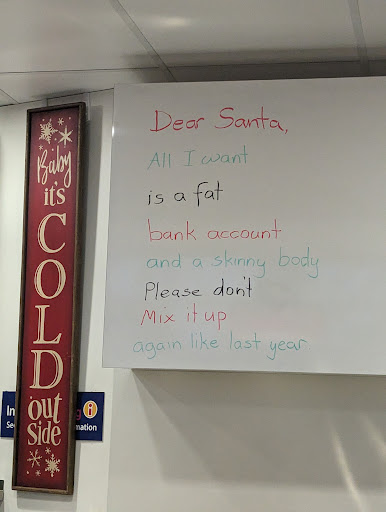 Baby
it's
COLD
out
side
Dear Santa,
All I want
is a fat
bank account
and a skinny body
Please don't
Mix it up
again like last year.